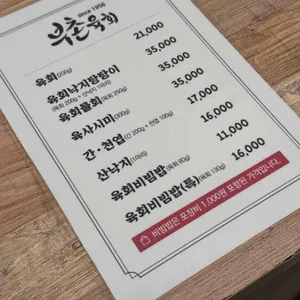 since 1956
부촌육회
육회(200g) 21,000
육회낙지탕탕이 35,000
(육회 200g + 산낙지 1마리)
육회물회(육회 250g) 35,000
육사시미(300g) 35,000
간·천엽(간 200g + 천엽 100g) 17,000
산낙지(1마리) 16,000
육회비빔밥(육회 80g) 11,000
육회비빔밥(특)(육회 130g) 16,000
비빔밥은 포장비 1,000원 포함된 가격입니다.